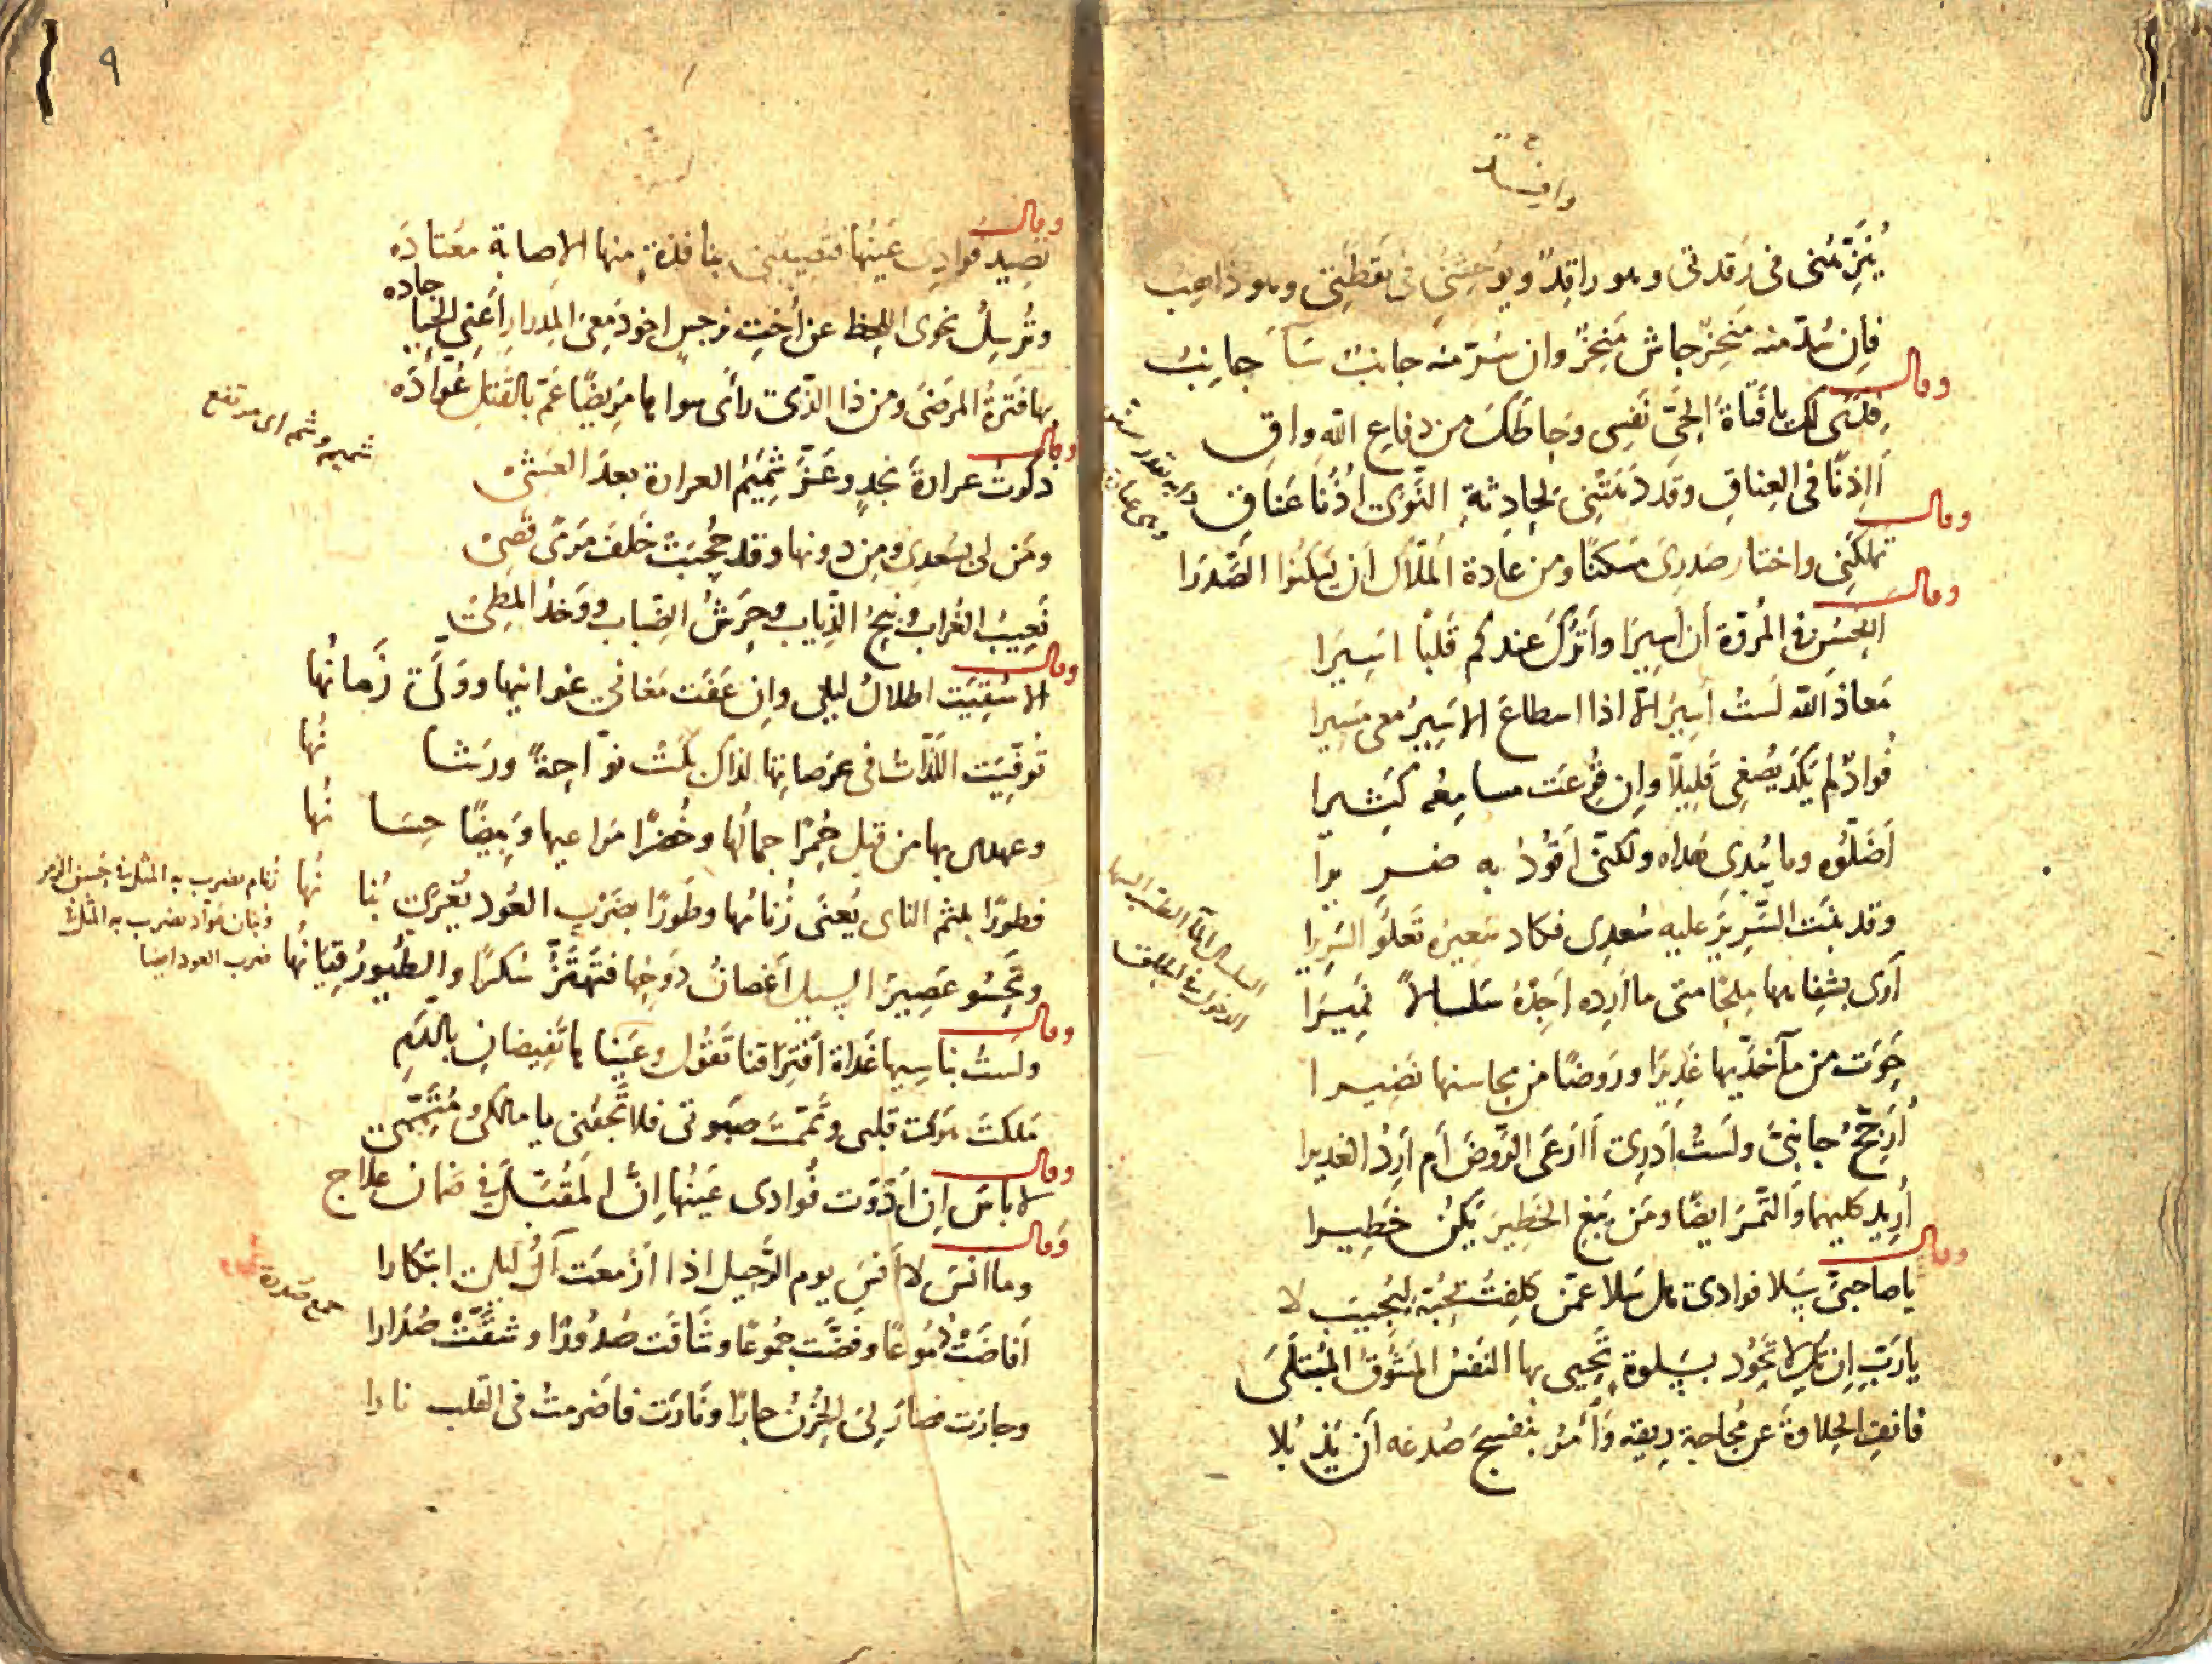 فى رقدتى وهو راقد ويوحشنى فى يقظتى وهو ذاهب
فان سُدّ منه مَنخِرٌ جاش مَنخِرٌ وان سُدّ منه جانبٌ جانِبُ
وقال
فدًى لك يا فتاة الحىّ نفسى وحاطك من دفاع الله واقِ
أإذنًا فى العِناق وقد دَهَتنى لحادثة النّوى اُذُنا عَناقِ
وقال
تملكنى واختار صدرى مسكنًا ومن عادة المُلّاك ان يسكنوا الصّدرَا
وقال
ايحسن فى المُروّة أن أسيرا وأترك عندكم قلبًا اسيرا
مَعاذ الله لستُ أسير الّا اذا اسطاع الاسير معى مسيرا
فُوادٌ لم يكد يُصغى قليلًا وان قُرعت مسامعُه كثيرا
اَضلّوه وما يُبدى هداه ولكنّى اقود به ضريرا
وقد بنت السّرير عليه سُعدى فكاد يعلو السريرا
أرى بشفاهها مِلحًا متى ما أرِده اَجِدْهُ سَلسالًا نَميرَا
حَوت من مآ خدّيها غديرًا ورَوضًا من محاسنها نضيرا
جانبىّ ولستُ أدرى أأرعى الرّوض أم أرِدُ الغديرا
أريد كليهما والتّمر ايضًا ومن يَبغِ الخطير يكن خطيرا
وقال
يا صاحبىّ سَلا فوادى هل سَلا عمّن كلفتُ بحبّه ليجيب لا
يا ربّ إن لا تجُود بسَلوة تحيى بها النّفسُ المَشوق المُبتلَى
فانفِ الحلاوة عن مُجاجة ريقه وأمُر بنفسج صُدغه أن يذبلا
٩
وقال
تصيد فوادى عينها فتصيبنى بنافذة منها الاصابة معتادَه
وتُرسل نحوى اللحظ عن أخت نرجسٍ
بها فترةُ المرضى ومن ذا الّذى رأى سواها مريضًا عمّ بالقتل عُوّادَه
شميم وشم اى مرتفع
وقال
ذكرتُ عرارة نجدٍ وعَزّ شميمُ العرارة بعد العشىْ
ومن لى بسُعدى ومن دونها وقد حُجبت خلف مَرمًى قصىْ
نعيبُ الغراب ونبحُ الذّياب وحرشُ الضّباب ووَخدُ المطىْ
وقال
الا سُقيت اطلالُ ليلى وإن عَفت مغانى غوانيها وولّى زَمانُها
تُوفّيت اللّذّات فى عرصاتها لذاك بكت نوّاحةً ورشا نُها
وعهدى بها من قبل حُمرًا جمالُها وخُضرًا مراعيها وبيضًا حِسا نُها
فطورًا بلثم الناى يُعنى زُنامُها وطورًا بضرب العُود يُغرى بُنا نُها
زنام يضرب به المثل فى حُسن الزمر
وبنان عوّاد يضرب به المثل فى
ضرب العود ايضا
عصير السيل أغصانُ دَوحها فتهتزّ سكرًا والطيورُ قيانُها
وقال
ولستُ بناسيها غداة افتراقنا تقول وعيناها تفيضان بالدّمِ
ملكتَ قلبى صبوتى فلا تجفُنى يا مالكى
وقال
لا بأس إن أدْوَت فُوادى عينُها إنّ المُقبّل فى ضمان علاج
وقال
وما انس لا أنس يوم الرّحيل اذا أزمعت آل ليلى ابتكارا
جمع صدرة
أفاضت دُموعًا وفضّت جُموعًا وشاقت صُدورًا وشقّت صُدارا
وجارت فصار لىَ الحُزنُ جارًا ونأرت فأضرمت فى القلب نارا